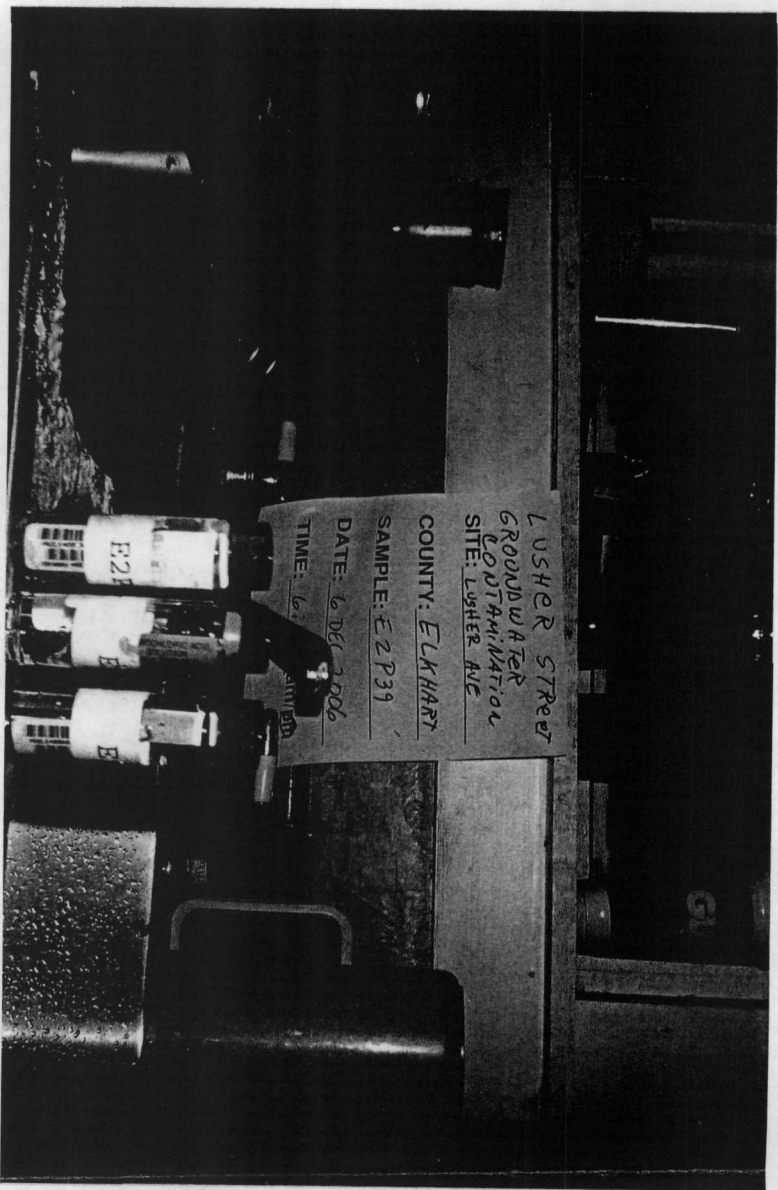 LUSHER STREET
GROUNDWATER
CONTAMINATION
SITE: LUSHER AVE
COUNTY: ELKHART
SAMPLE: E2P39
DATE: 6 DEC 2006
TIME: 6:
E2P
E
E